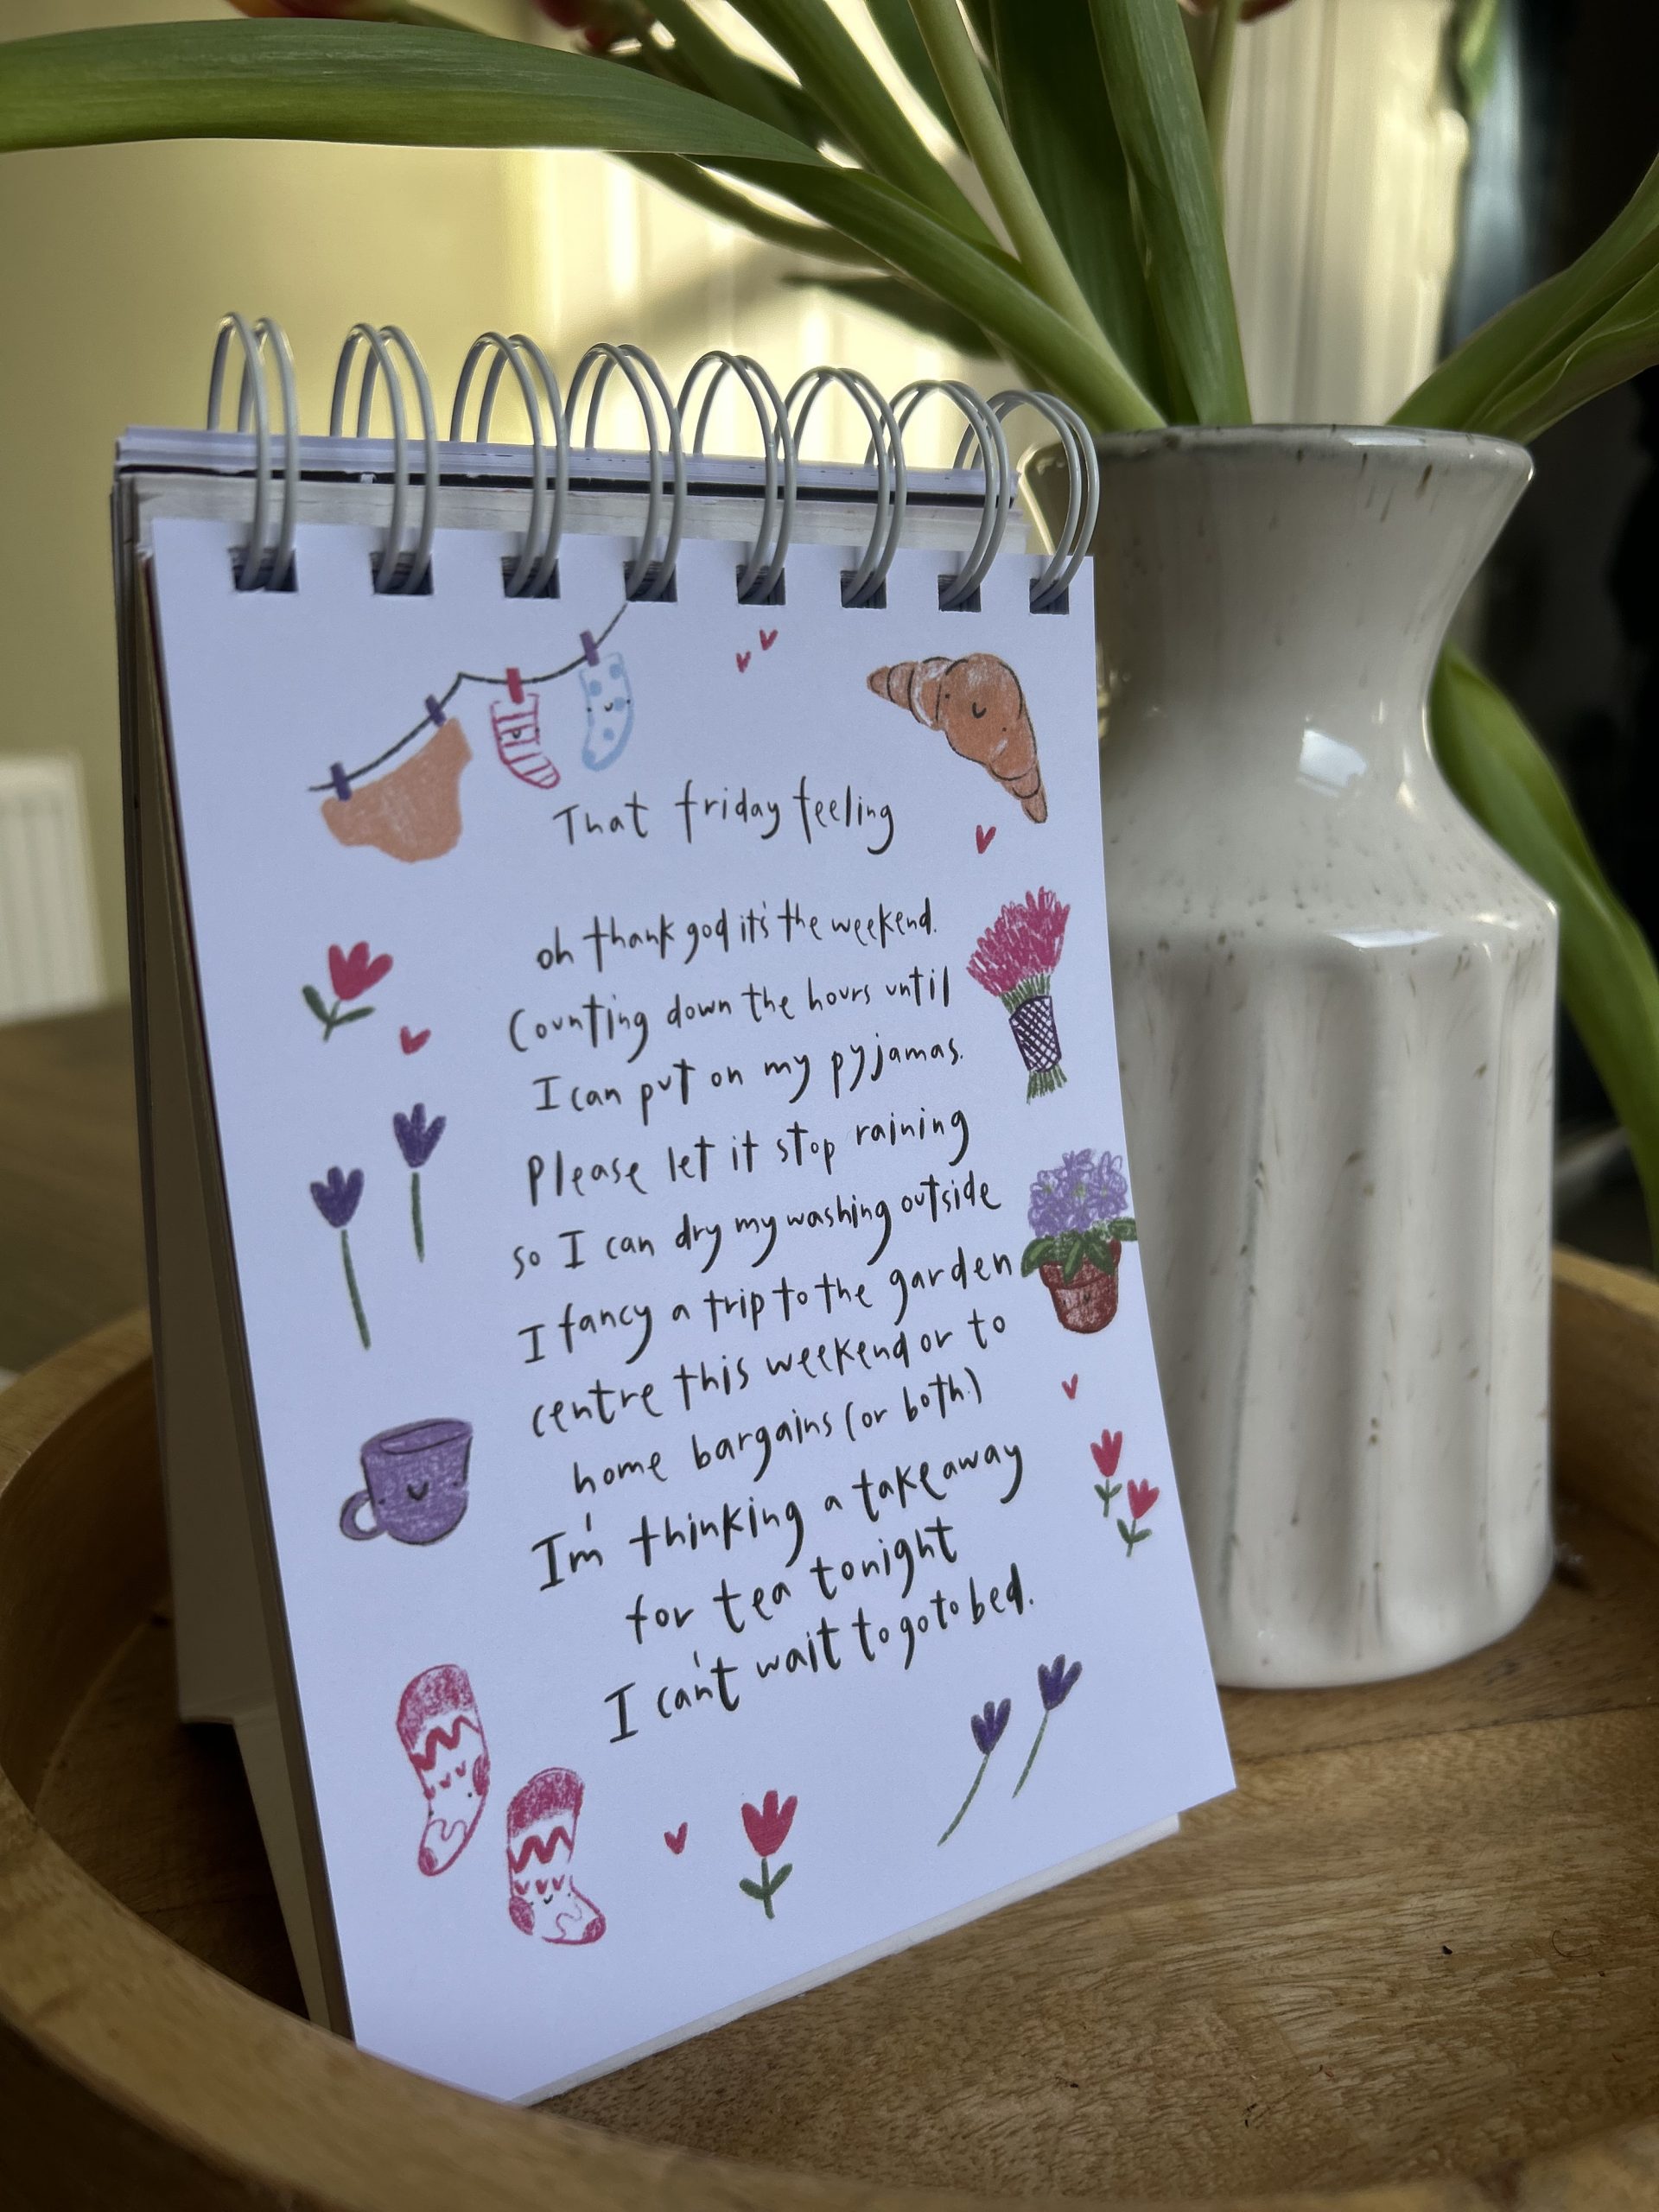 That friday feeling
oh thank god it's the weekend.
Counting down the hours until
I can put on my pyjamas.
Please let it stop raining
so I can dry my washing outside
I fancy a trip to the garden
centre this weekend or to
home bargains (or both.)
I'm thinking a takeaway
for tea tonight
I can't wait to go to bed.